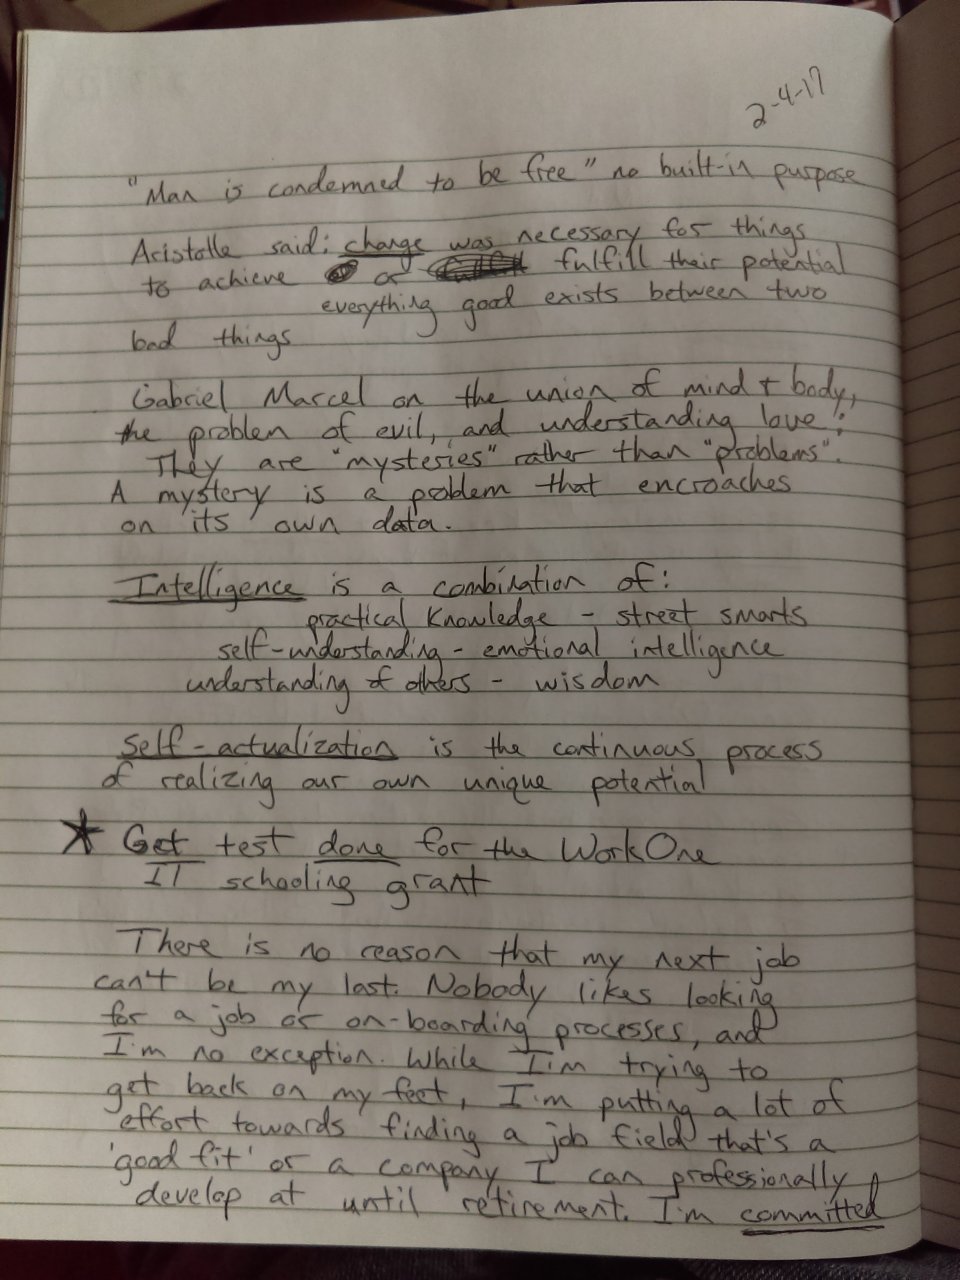 2-4-17
"Man is condemned to be free" no built-in purpose
Aristotle said: change was necessary for things
to achieve or fulfill their potential
everything good exists between two
bad things
Gabriel Marcel on the union of mind + body,
the problem of evil, and understanding love:
They are "mysteries" rather than "problems".
A mystery is a problem that encroaches
on its own data.
Intelligence is a combination of:
practical knowledge - street smarts
self-understanding - emotional intelligence
understanding of others - wisdom
Self-actualization is the continuous process
of realizing our own unique potential
★ Get test done for the WorkOne
IT schooling grant
There is no reason that my next job
can't be my last. Nobody likes looking
for a job or on-boarding processes, and
I'm no exception. While I'm trying to
get back on my feet, I'm putting a lot of
effort towards finding a job field that's a
'good fit' or a company I can professionally
develop at until retirement. I'm committed